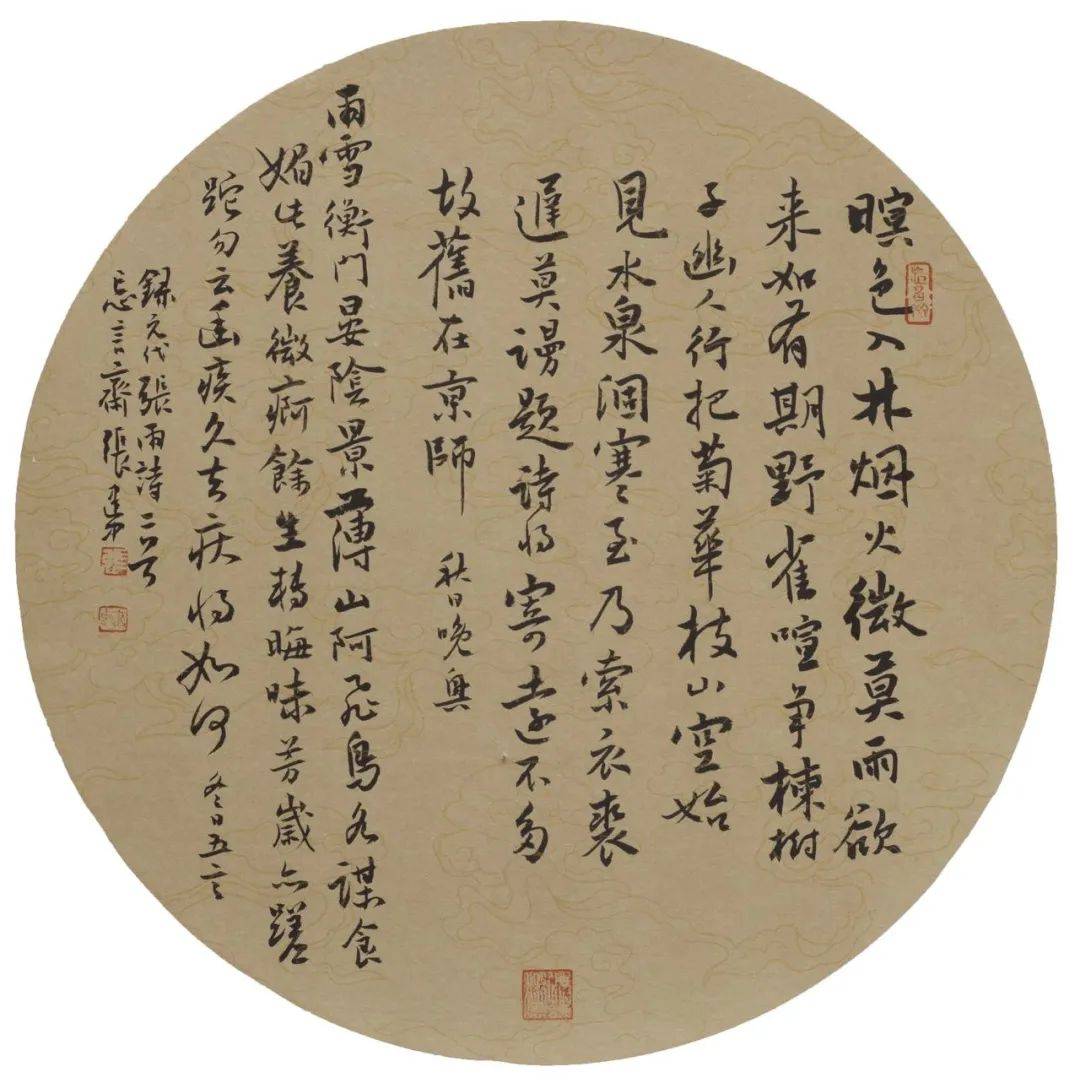 暝色入林烟火微莫雨欲
来如有期野雀喧争楝樹
子幽人行把菊華枝山空始
見水泉涸寒至乃索衣裘
遲莫謾題詩将寄遠不多
故舊在京師 秋日晚興
雨雪衡門晏陰景薄山阿飛鳥各謀食
媚此養微痾餘生轉晦昧芳歲亦蹉
跎勿云疾久去疾将如何 冬日五言
録元代張雨詩二首
忘言齋張